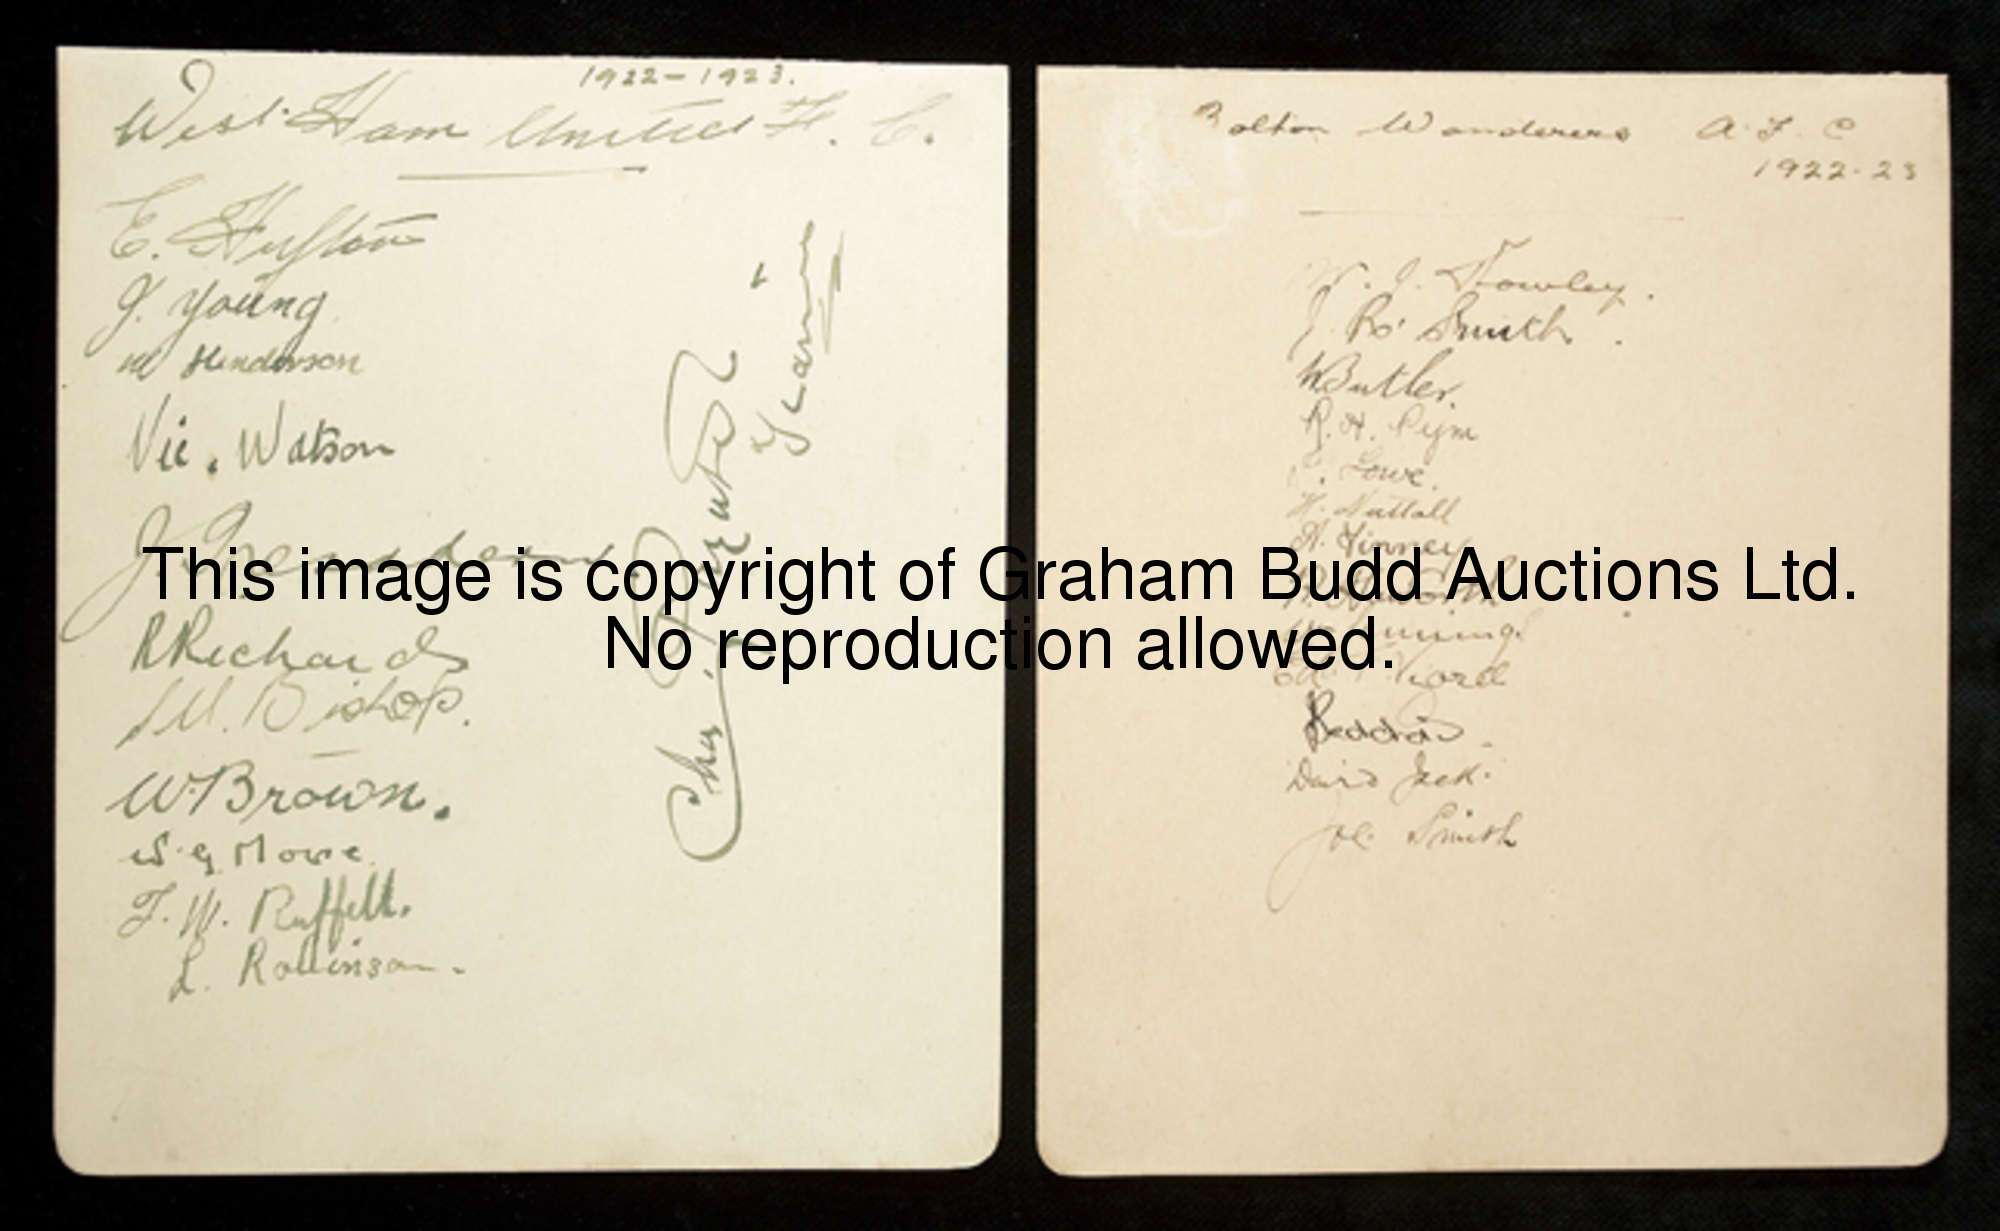 1922-1923.
West Ham United F. C.
E. Hufton
J. Young
W Henderson
Vic. Watson
J. Tresadern
R Richards
S M. Bishop.
W. Brown.
W. G. Moore
F. W. Ruffell.
L. Robinson.
Chas.
Trainer
Bolton Wanderers A. F. C
1922-23
W. J. Rowley.
J. R. Smith.
W Butler.
R. H. Pym
Lowe.
H. Nuttall
A. Finney
Jennings.
Vizard
Seddon.
David Jack.
Joe Smith
This image is copyright of Graham Budd Auctions Ltd.
No reproduction allowed.